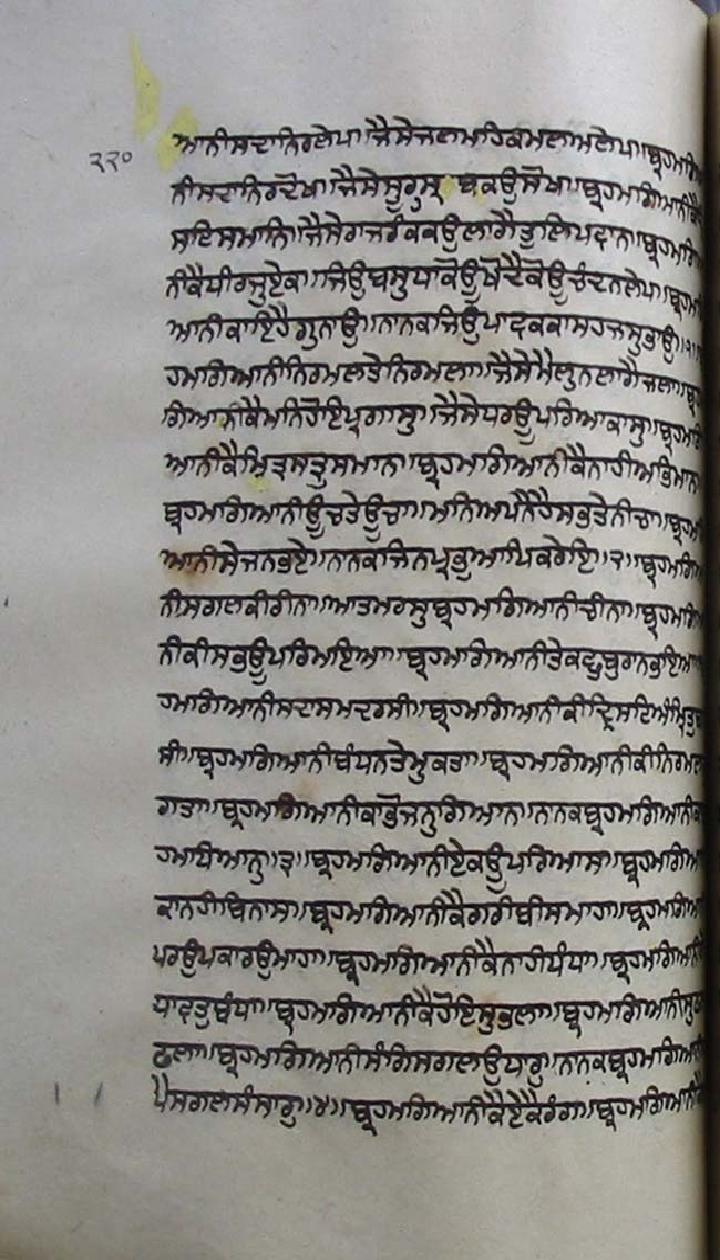 ੨੨੦
ਆਨੀਸਦਾਨਿਰਲੇਪ॥ਜੈਸੇਜਲਮਹਿਕਮਲਅਲੇਪ॥ਬ੍ਰਹਮਗਿ
ਨੀਸਦਾਨਿਰਦੋਖ॥ਜੈਸੇਸੂਰੁਸਰਬਕਉਸੋਖ॥ਬ੍ਰਹਮਗਿਆਨੀਕੈ
ਸਟਿਸਮਾਨਿ॥ਜੈਸੇਰਾਜਰੰਕਕਉਲਾਗੈਤੁਲਿਪਵਾਨ॥ਬ੍ਰਹਮਗਿ
ਨੀਕੈਧੀਰਜੁਏਕ॥ਜਿਉਬਸੁਧਾਕੋਊਖੋਦੈਕੋਊਚੰਦਨਲੇਪ॥ਬ੍ਰਹਮ
ਆਨੀਕਾਇਹੈਗੁਨਾਉ॥ਨਾਨਕਜਿਉਪਾਵਕਕਾਸਹਜਸੁਭਾਉ॥੧॥
ਹਮਗਿਆਨੀਨਿਰਮਲਤੇਨਿਰਮਲਾ॥ਜੈਸੇਮੈਲੁਨਲਾਗੈਜਲਾ॥ਬ੍ਰ
ਗਿਆਨੀਕੈਮਨਿਹੋਇਪ੍ਰਗਾਸੁ॥ਜੈਸੇਧਰਊਪਰਿਆਕਾਸੁ॥ਬ੍ਰਹਮਗਿ
ਆਨੀਕੈਮਿਤ੍ਰਸਤ੍ਰੁਸਮਾਨ॥ਬ੍ਰਹਮਗਿਆਨੀਕੈਨਾਹੀਅਭਿਮਾਨ
ਬ੍ਰਹਮਗਿਆਨੀਊਚਤੇਊਚਾ॥ਮਨਿਅਪੈਨੈਹੈਸਭਤੇਨੀਚਾ॥ਬ੍ਰਹਮ
ਆਨੀਸੇਜਨਭਏ॥ਨਾਨਕਜਿਨਪ੍ਰਭੁਆਪਿਕਰੇਇ॥੨॥ਬ੍ਰਹਮਗਿ
ਨੀਸਗਲਕੀਰੀਨਾ॥ਆਤਮਰਸੁਬ੍ਰਹਮਗਿਆਨੀਚੀਨਾ॥ਬ੍ਰਹਮਗਿ
ਨੀਕੀਸਭਊਪਰਿਮਇਆ॥ਬ੍ਰਹਮਗਿਆਨੀਤੇਕਛੁਬੁਰਾਨਭਇਆ
ਹਮਗਿਆਨੀਸਦਾਸਮਦਰਸੀ॥ਬ੍ਰਹਮਗਿਆਨੀਕੀਦ੍ਰਿਸਟਿਅੰਮ੍ਰਿਤੁਬ
ਸੀ॥ਬ੍ਰਹਮਗਿਆਨੀਬੰਧਨਤੇਮੁਕਤਾ॥ਬ੍ਰਹਮਗਿਆਨੀਕੀਨਿਰਮਲ
ਗਤਾ॥ਬ੍ਰਹਮਗਿਆਨੀਕਾਭੋਜਨੁਗਿਆਨ॥ਨਾਨਕਬ੍ਰਹਮਗਿਆਨੀਕ
ਹਮਧਿਆਨੁ॥੩॥ਬ੍ਰਹਮਗਿਆਨੀਏਕਊਪਰਿਆਸ॥ਬ੍ਰਹਮਗਿਆ
ਕਾਨਹੀਬਿਨਾਸ॥ਬ੍ਰਹਮਗਿਆਨੀਕੈਗਰੀਬੀਸਮਾਹਾ॥ਬ੍ਰਹਮਗਿਆ
ਪਰਉਪਕਾਰਉਮਾਹਾ॥ਬ੍ਰਹਮਗਿਆਨੀਕੈਨਾਹੀਧੰਧਾ॥ਬ੍ਰਹਮਗਿਆਨੀ
ਧਾਵਤੁਬੰਧਾ॥ਬ੍ਰਹਮਗਿਆਨੀਕੈਹੋਇਸੁਭਲਾ॥ਬ੍ਰਹਮਗਿਆਨੀਸੁਫ
ਫਲਾ॥ਬ੍ਰਹਮਗਿਆਨੀਸੰਗਿਸਗਲਉਧਾਰੁ॥ਨਾਨਕਬ੍ਰਹਮਗਿਆਨੀ
ਪੈਸਗਲਸੰਸਾਰੁ॥੪॥ਬ੍ਰਹਮਗਿਆਨੀਕੈਏਕੈਰੰਗ॥ਬ੍ਰਹਮਗਿਆਨੀਕੈ